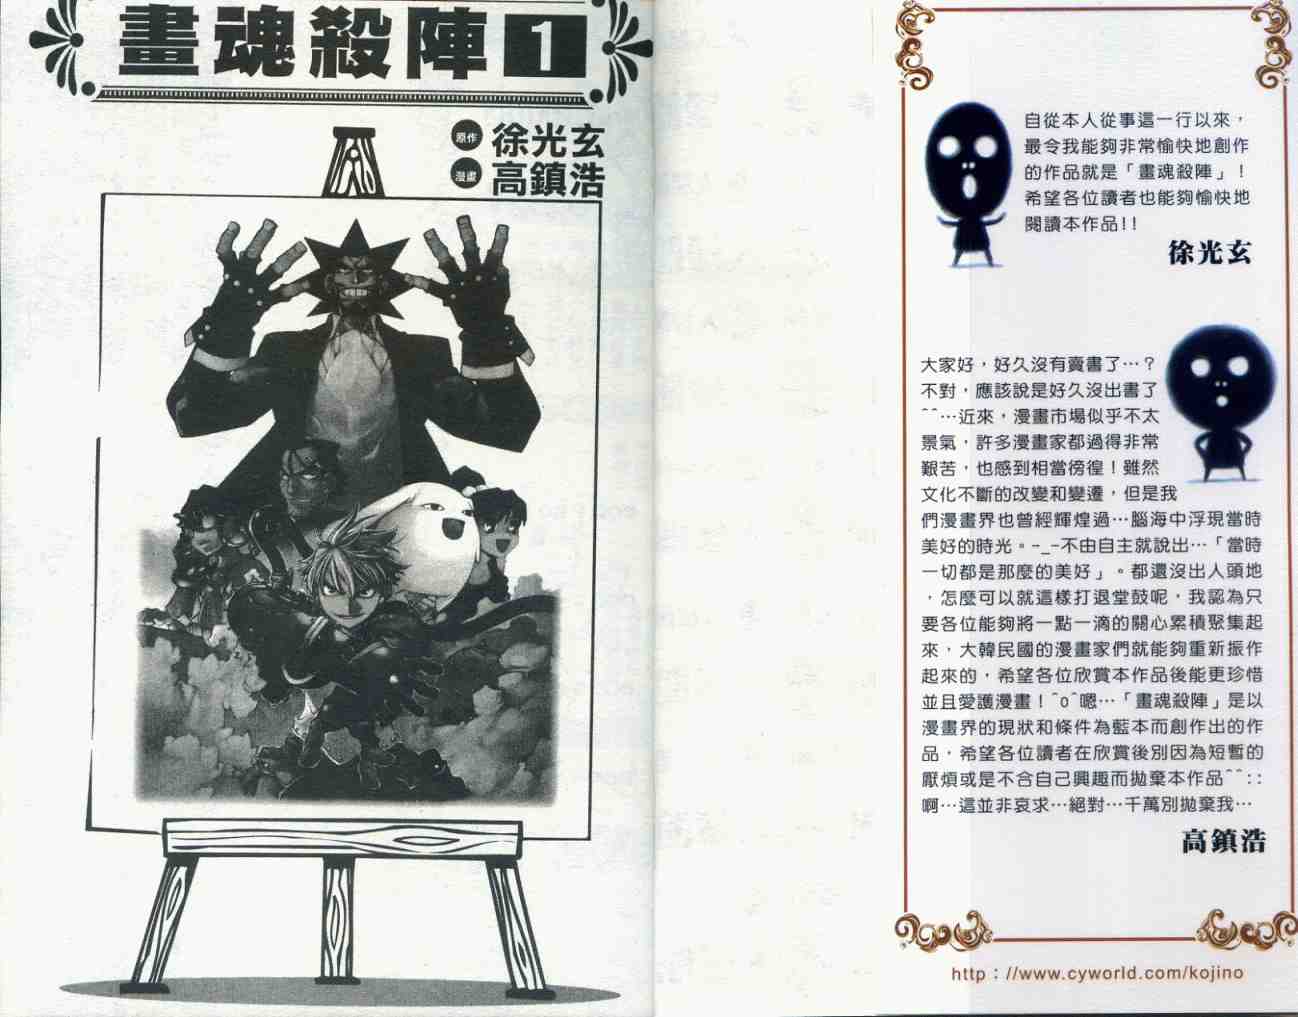 畫魂殺陣 1
原作 徐光玄
漫畫 高鎮浩
自從本人從事這一行以來，
最令我能夠非常愉快地創作
的作品就是「畫魂殺陣」！
希望各位讀者也能夠愉快地
閱讀本作品!!
徐光玄
大家好，好久沒有賣書了…？
不對，應該說是好久沒出書了
^^…近來，漫畫市場似乎不太
景氣，許多漫畫家都過得非常
艱苦，也感到相當徬徨！雖然
文化不斷的改變和變遷，但是我
們漫畫界也曾經輝煌過…腦海中浮現當時
美好的時光。-_-不由自主就說出…「當時
一切都是那麼的美好」。都還沒出人頭地
，怎麼可以就這樣打退堂鼓呢，我認為只
要各位能夠將一點一滴的關心累積聚集起
來，大韓民國的漫畫家們就能夠重新振作
起來的，希望各位欣賞本作品後能更珍惜
並且愛護漫畫！^o^嗯…「畫魂殺陣」是以
漫畫界的現狀和條件為藍本而創作出的作
品，希望各位讀者在欣賞後別因為短暫的
厭煩或是不合自己興趣而拋棄本作品^^::
啊…這並非哀求…絕對…千萬別拋棄我…
高鎮浩
http：//www.cyworld.com/kojino